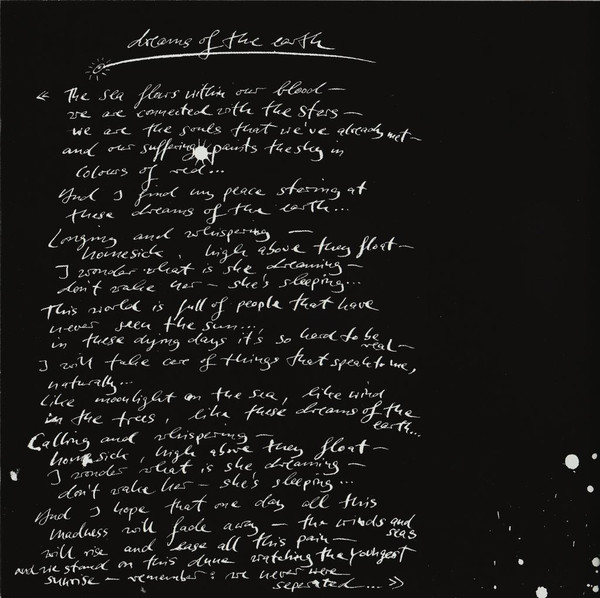 dreams of the earth
« The sea flows within our blood –
we are connected with the stars –
we are the souls that we've already met –
and our suffering paints the sky in
colours of red...
And I find my peace staring at
these dreams of the earth...
Longing and whispering –
homesick, high above they float –
I wonder what is she dreaming –
don't wake her – she's sleeping...
This world is full of people that have
never seen the sun...
in these dying days it's so hard to be
real –
I will take care of things that speak to me,
naturally...
like moonlight on the sea, like wind
in the trees, like these dreams of the
earth...
Calling and whispering –
homesick, high above they float –
I wonder what is she dreaming –
don't wake her – she's sleeping...
And I hope that one day all this
madness will fade away – the winds and
seas
will rise and ease all this pain –
and we stand on this dune watching the youngest
sunrise – remember: we never were
seperated... »